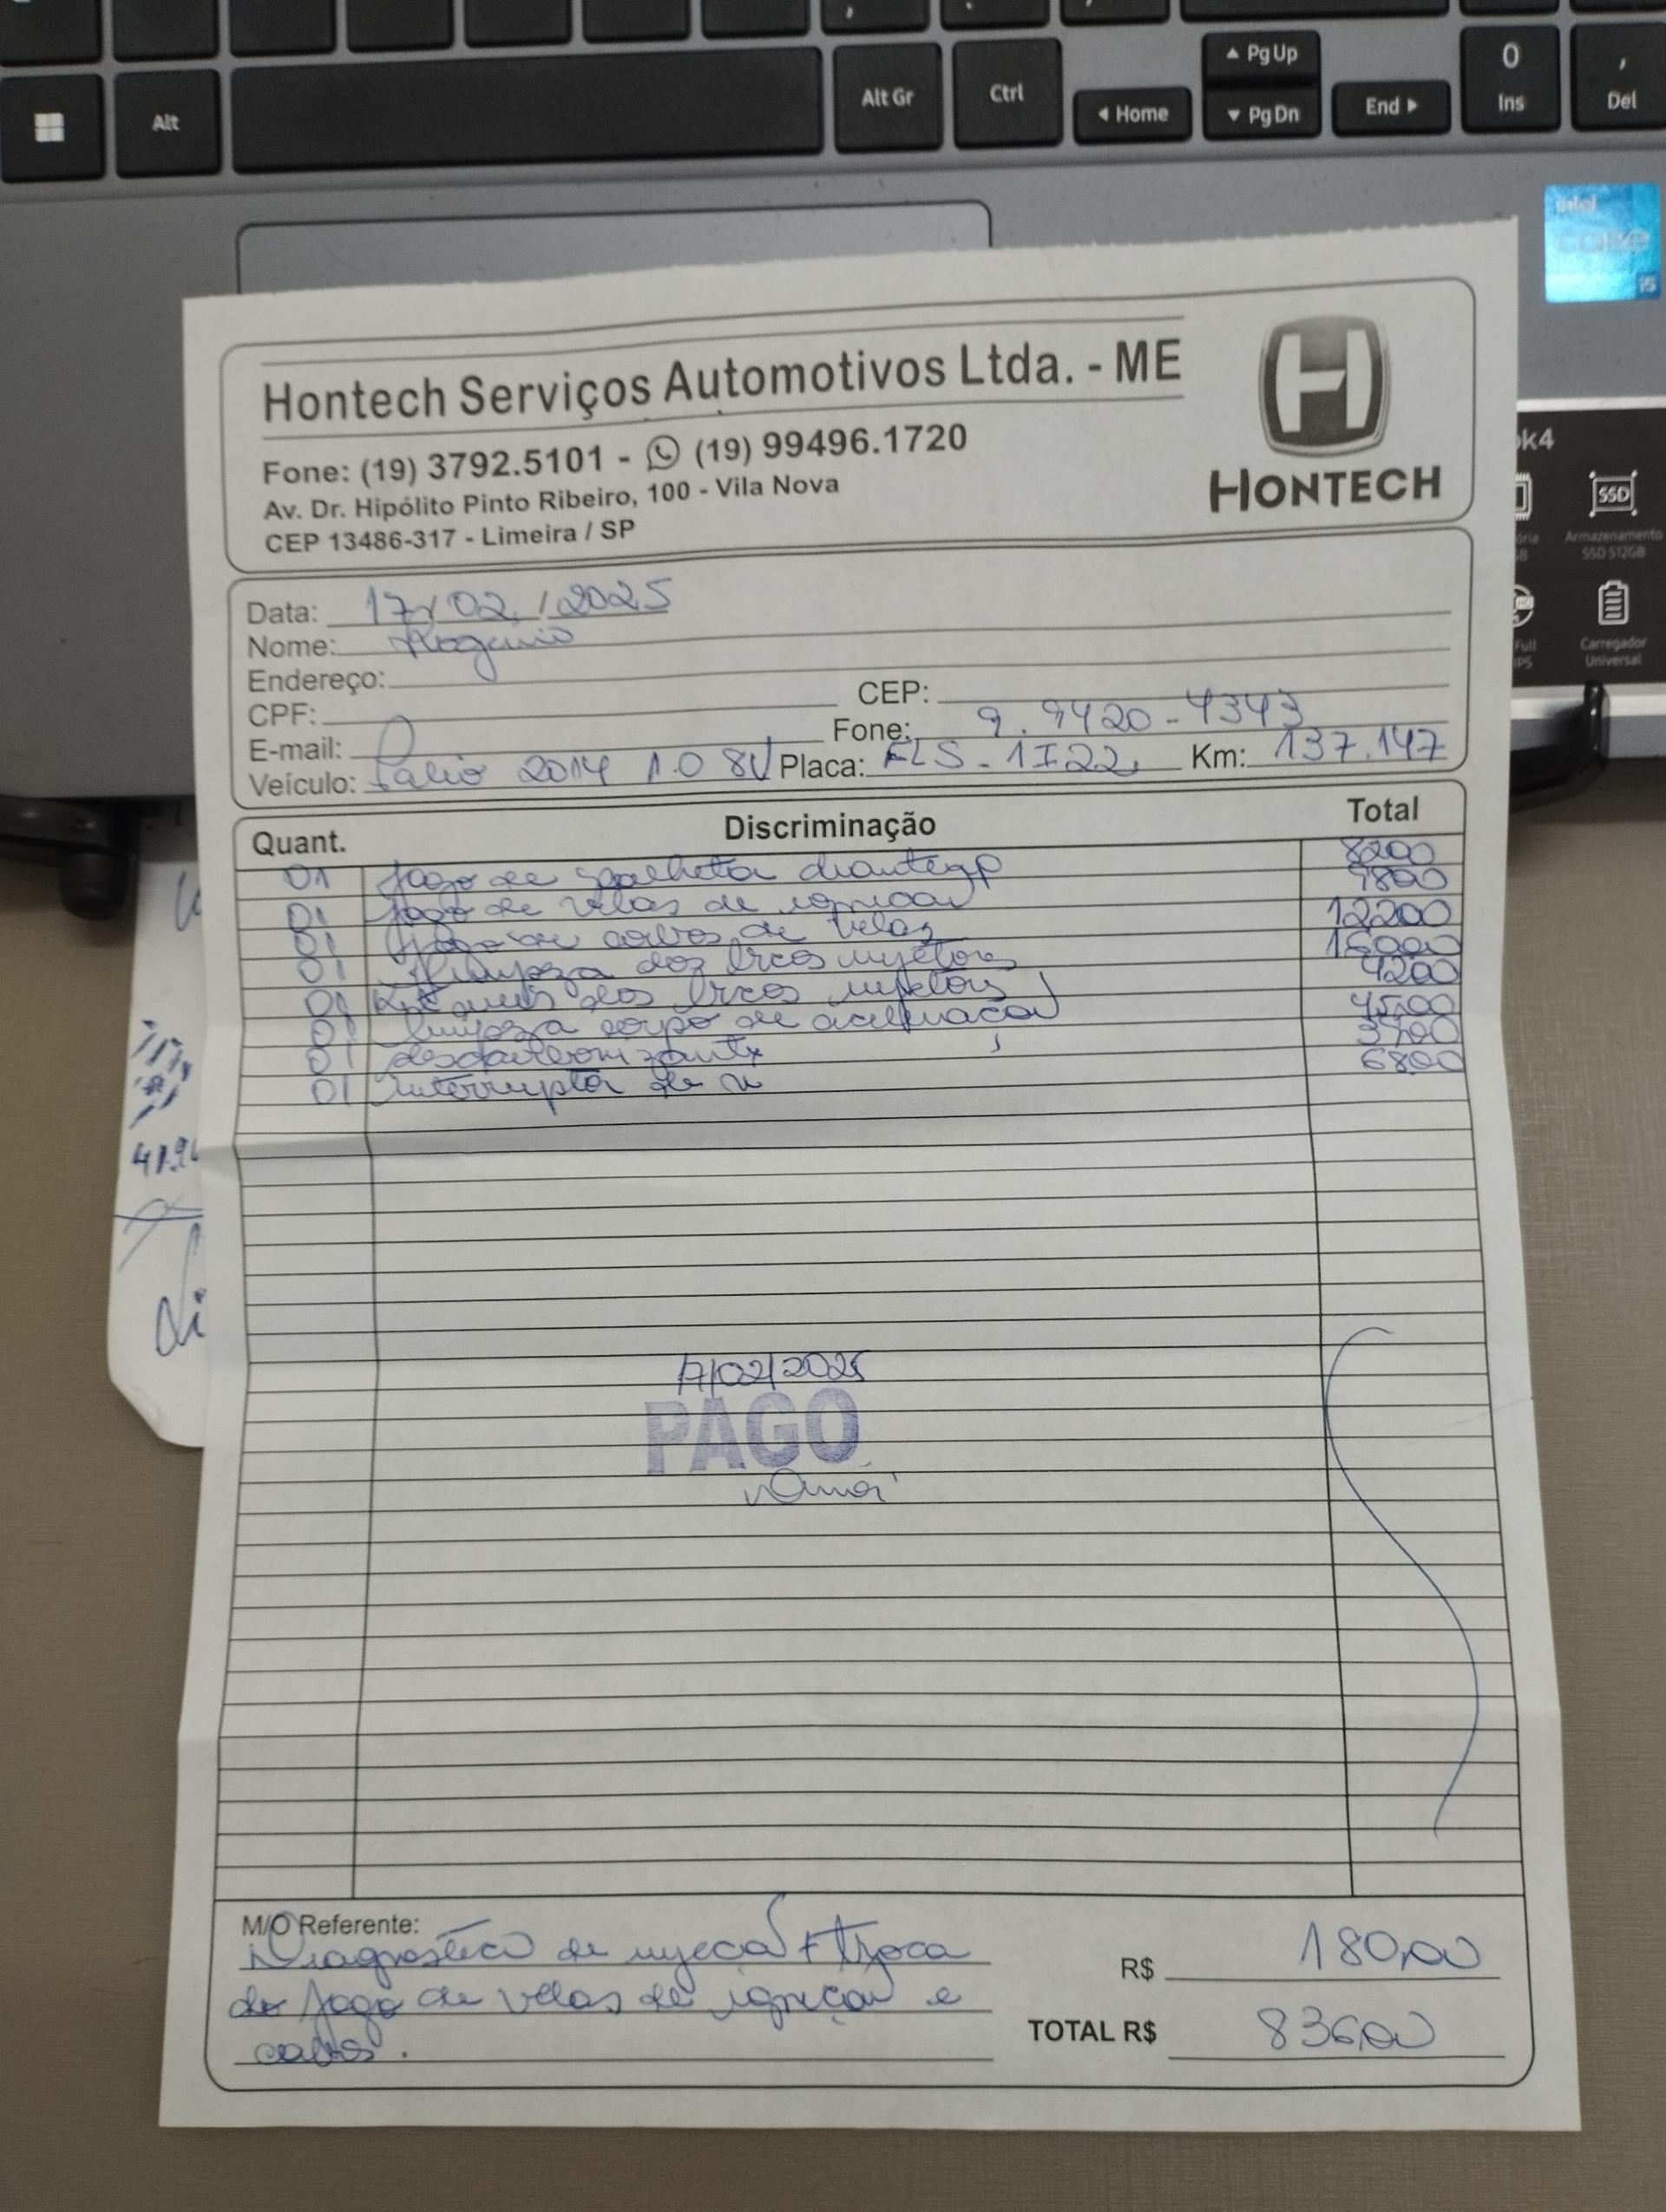 Alt
Alt Gr
Ctrl
Home
Pg Up
Pg Dn
End
0
Ins
,
Del
intel
CORE
i5
Hontech Serviços Automotivos Ltda. - ME
Fone: (19) 3792.5101 - (19) 99496.1720
Av. Dr. Hipólito Pinto Ribeiro, 100 - Vila Nova
CEP 13486-317 - Limeira / SP
H
HONTECH
k4
SSD
Armazenamento
SSD 512GB
Full
Carregador
Universal
Data: 17/02/2025
Nome: Rogerio
Endereço:
CPF: CEP:
E-mail: Fone: 9.9420-4343
Veículo: Palio 2014 1.0 8V Placa: FLS-1I22 Km: 137.147
Quant. Discriminação Total
01 Jogo de palheta 8200
01 Jogo de velas de ignição 9800
01 Jogo de cabos de velas 12200
01 limpeza dos bicos injetores 16000
01 Kit dos bicos injetores 4200
01 limpeza corpo de aceleração 4500
01 descarbonizante
01 interruptor de 6800
17/02/2025
PAGO
41.9
M/O Referente:
Diagnostico de injeção + troca
do jogo de velas de ignição e
cabos.
R$ 180,00
TOTAL R$ 836,00